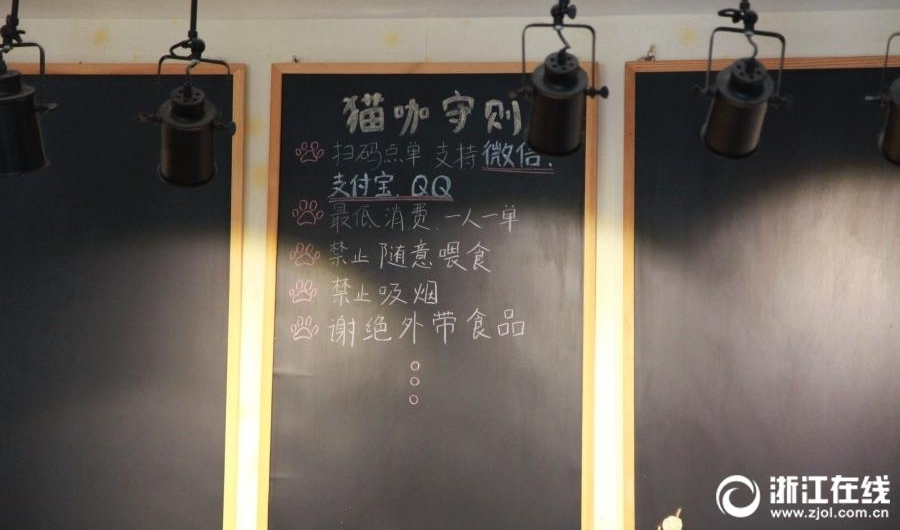 猫咖守则
扫码点单 支持微信、
支付宝、QQ
最低消费 一人一单
禁止随意喂食
禁止吸烟
谢绝外带食品
浙江在线
www.zjol.com.cn